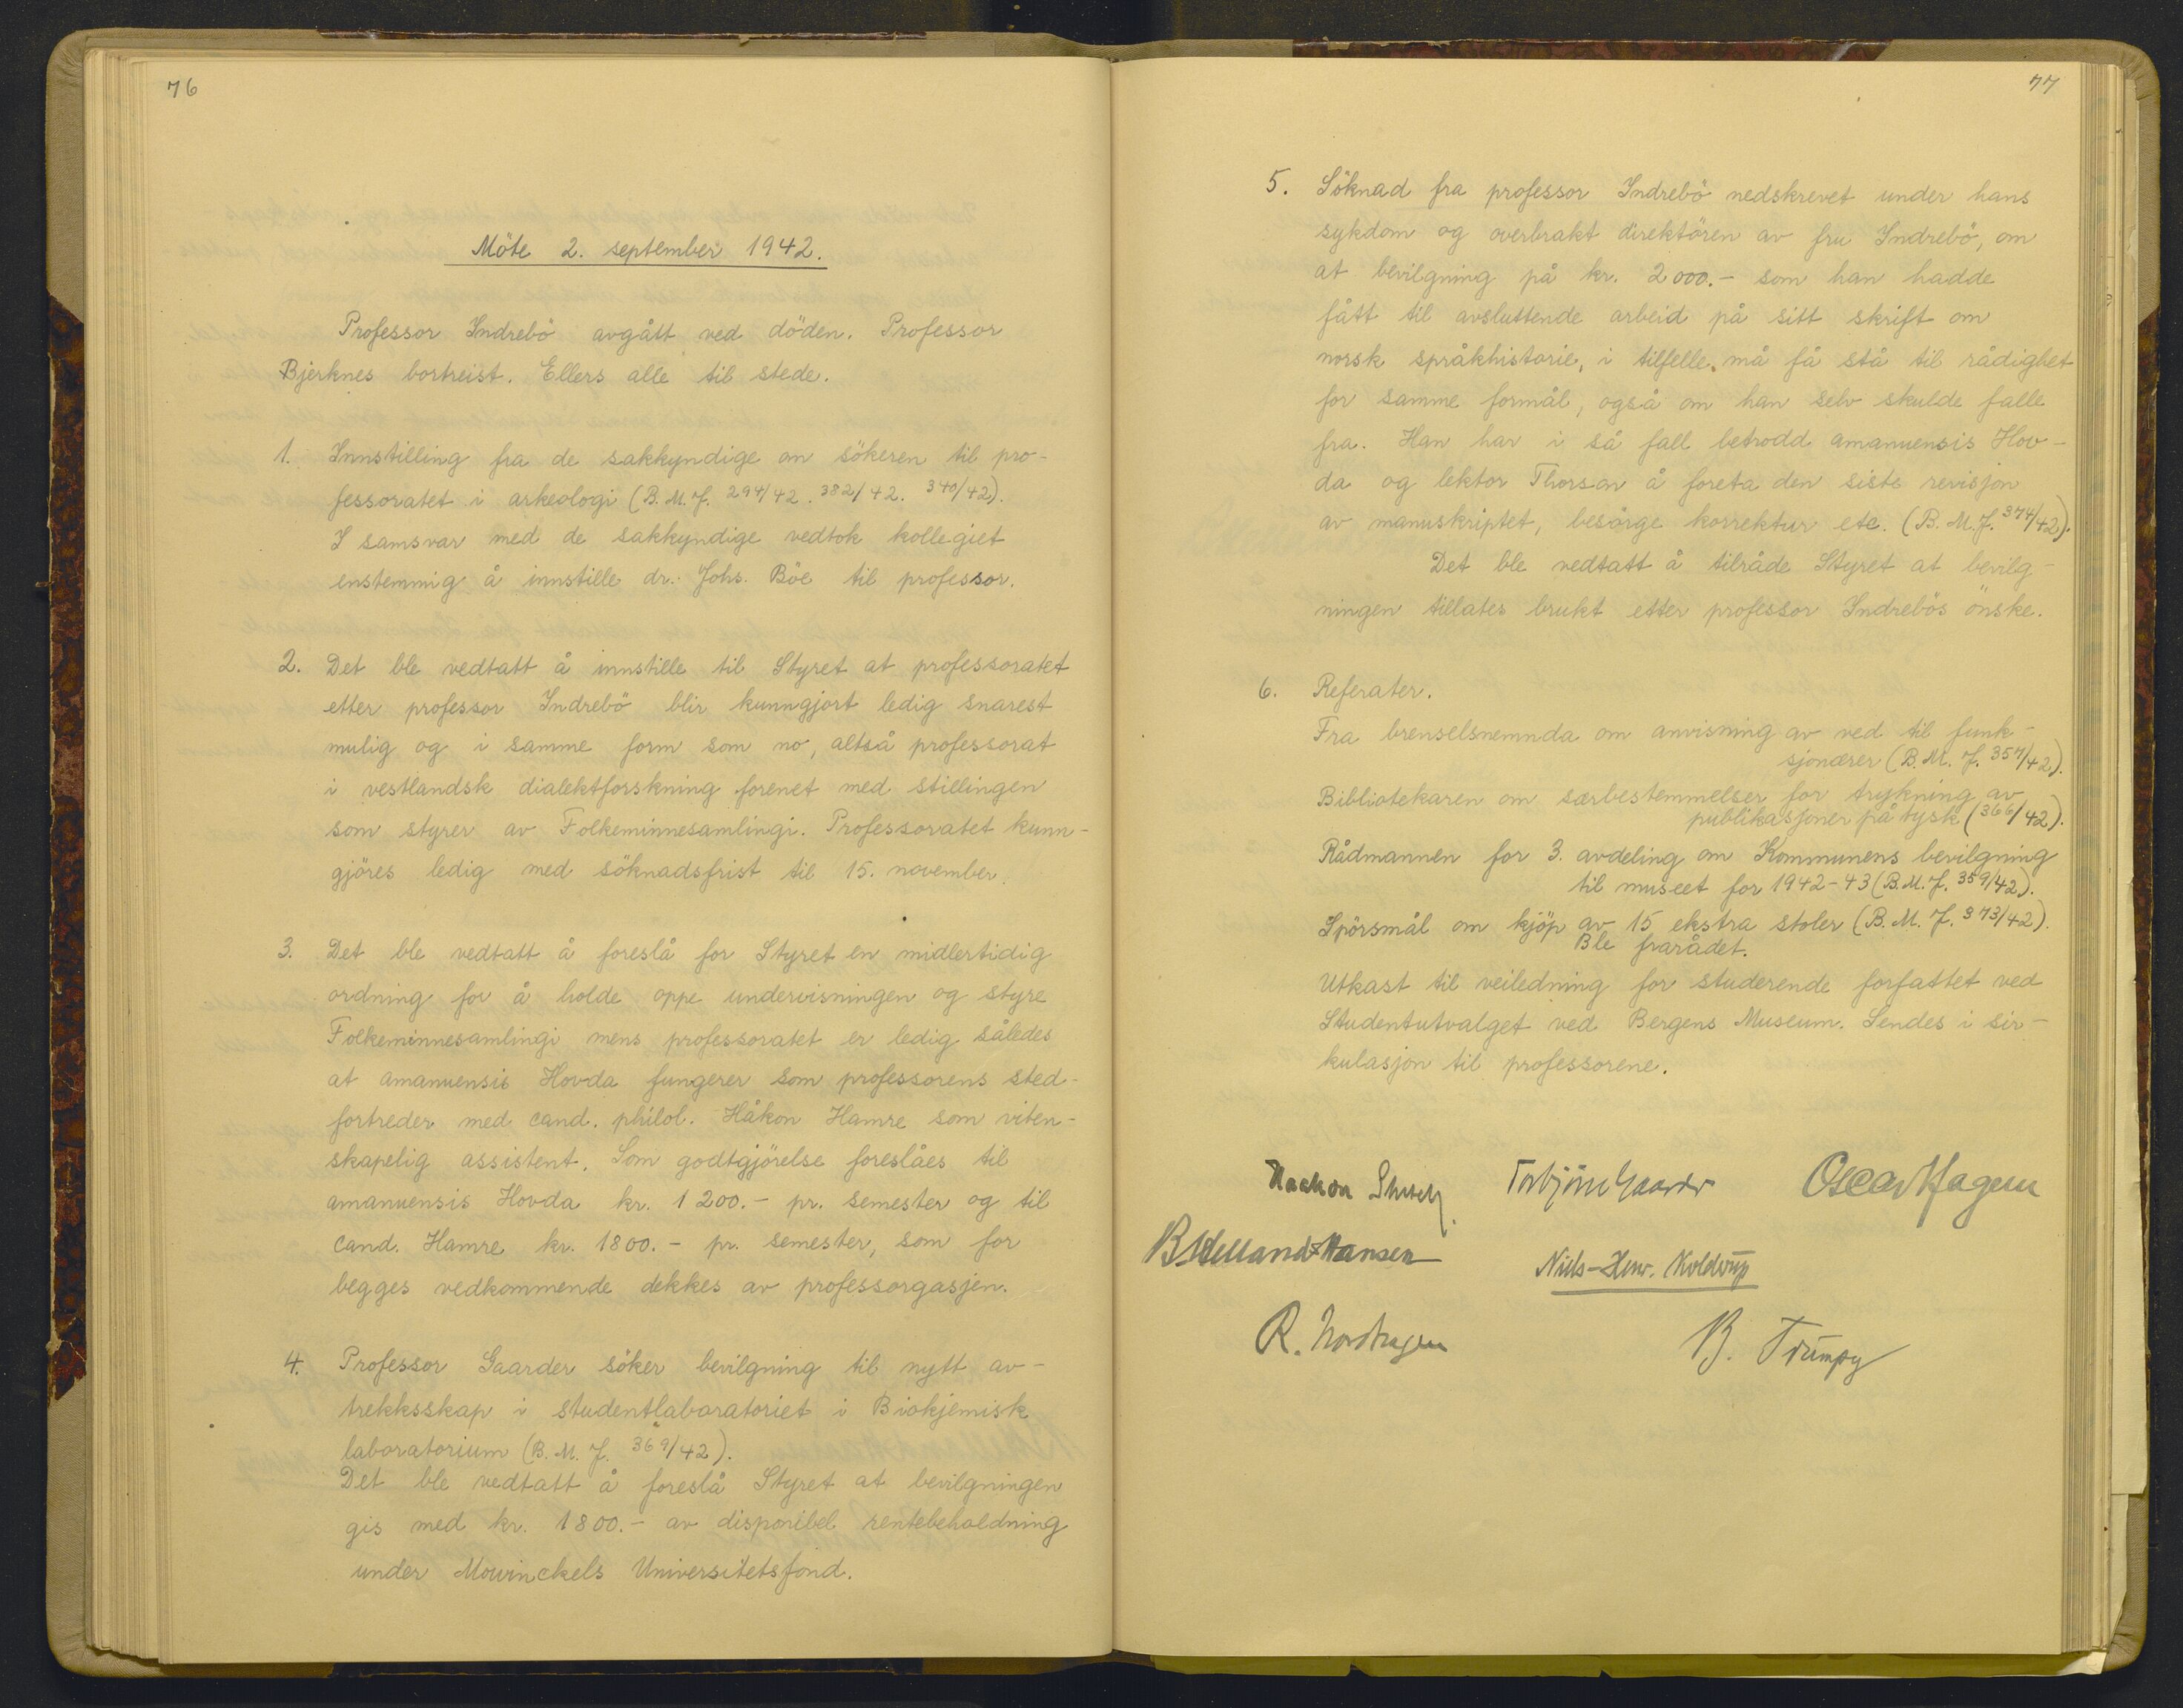 76
Möte 2. september 1942.
Professor Indrebö avgått ved döden. Professor
Bjerknes bortreist. Ellers alle til stede.
1. Innstilling fra de sakkyndige om sökeren til pro-
fessoratet i arkeologi (B.M.J. 294/42. 382/42. 340/42).
I samsvar med de sakkyndige vedtok kollegiet
enstemmig å innstille dr. Johs. Böe til professor.
2. Det ble vedtatt å innstille til Styret at professoratet
etter professor Indrebö blir kunngjort ledig snarest
mulig og i samme form som no, altså professorat
i vestlandsk dialektforskning forenet med stillingen
som styrer av Folkeminnesamlingi. Professoratet kunn-
gjöres ledig med söknadsfrist til 15. november.
3. Det ble vedtatt å foreslå for Styret en midlertidig
ordning for å holde oppe undervisningen og styre
Folkeminnesamlingi mens professoratet er ledig således
at amanuensis Hovda fungerer som professorens sted-
fortreder med cand. philol. Håkon Hamre som viten-
skapelig assistent. Som godtgjörelse foreslåes til
amanuensis Hovda kr. 1200.- pr. semester og til
cand. Hamre kr. 1800.- pr. semester, som for
begges vedkommende dekkes av professorgasjen.
4. Professor Gaarder söker bevilgning til nytt av-
trekksskap i studentlaboratoriet i Biokjemisk
laboratorium (B.M.J. 369/42).
Det ble vedtatt å foreslå Styret at bevilgningen
gis med kr. 1800.- av disponibel rentebeholdning
under Mowinckels Universitetsfond.
77
5. Söknad fra professor Indrebö nedskrevet under hans
sykdom og overbrakt direktören av fru Indrebö, om
at bevilgning på kr. 2000.- som han hadde
fått til avsluttende arbeid på sitt skrift om
norsk språkhistorie, i tilfelle, må få stå til rådighet
for samme formål, også om han selv skulde falle
fra. Han har i så fall betrodd amanuensis Hov-
da og lektor Thorson å foreta den siste revisjon
av manuskriptet, besörge korrektur etc. (B.M.J. 374/42).
Det ble vedtatt å tilråde Styret at bevilg-
ningen tillates brukt etter professor Indrebös önske.
6. Referater.
Fra brenselsnemnda om anvisning av ved til funk-
sjonærer (B.M.J. 357/42).
Bibliotekaren om særbestemmelser for trykning av
publikasjoner på tysk (366/42).
Rådmannen for 3. avdeling om Kommunens bevilgning
til museet for 1942-43 (B.M.J. 359/42).
Spörsmål om kjöp av 15 ekstra stoler (B.M.J. 373/42).
Ble frarådet.
Utkast til veiledning for studerende forfattet ved
Studentutvalget ved Bergens Museum. Sendes i sir-
kulasjon til professorene.
Haakon Torbjörn Gaarder Oscar Hagem
B Helland-Hansen Niels-Henr. Kolderup
R. Nordhagen B. Trumpy